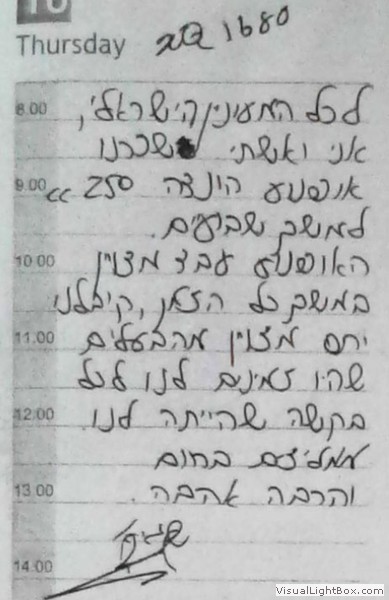 10
Thursday
1680
8.00
לכל המעוניין הישראלי,
אני ואשתי שכרנו
9.00
אופנוע הונדה 250 ״
למשך שבועיים.
10.00
האופנוע עבד מצוין
במשך כל הזמן, קיבלנו
11.00
יחס מצוין מהבעלים
שהיו זמינים לנו לכל
12.00
בקשה שהייתה לנו.
ממליצים בחום
13.00
והרבה אהבה.
14.00
VisualLightBox.com